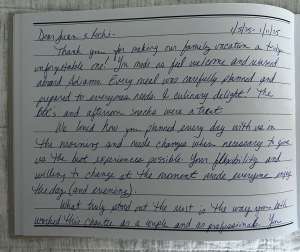 Dear Juan & Rocki- 1/5/15 - 1/11/15
Thank you for making our family vacation a truly
unforgettable one! You made us feel welcome and relaxed
aboard Adiamo. Every meal was carefully planned and
prepared to everyones needs & culinary delight! The
and afternoon snacks were a treat.
We loved how you planned every day with us in
the morning and made changes when necessary to give
us the best experiences possible. Your flexibility and
willing to change at the moment made everyone enjoy
the day (and evening).
What truly stood out the most is the way you both
worked this charter as a couple and as professionals. You